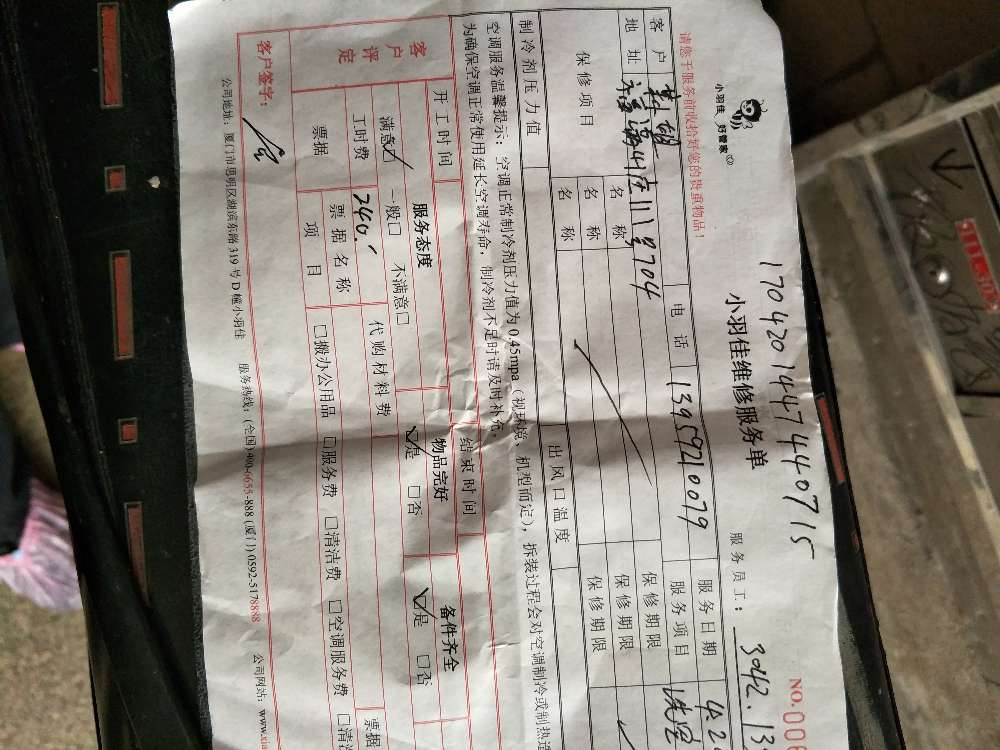 小羽佳 好管家
请您于服务前收拾好您的贵重物品！
170420144744407 15
小羽佳维修服务单
服务员工：3042.13
NO.00
客户 电话 13959210079 服务日期 4.2
地址 1118704 服务项目
保修项目 名称 保修期限
名称 保修期限
名称 保修期限
制冷剂压力值 出风口温度
空调服务温馨提示：空调正常制冷剂压力值为0.45mpa（视环境、机型而定），拆装过程会对空调制冷或制热造
为确保空调正常使用延长空调寿命，制冷剂不足时请及时补充。
开工时间 结束时间
客户评定 服务态度 物品完好 备件齐全
满意☑ 一般□ 不满意□ ☑是 □否 ☑是 □否
工时费 240. 代购材料费
票据 票据名称 项目 □搬办公用品 □服务费 □清洁费 □空调服务费 □清洁 票据
客户签字：
公司地址：厦门市思明区湖滨东路319号D幢小羽佳 服务热线：(全国)400-6655-888 (厦门) 0592-5178888 公司网站：www.xia